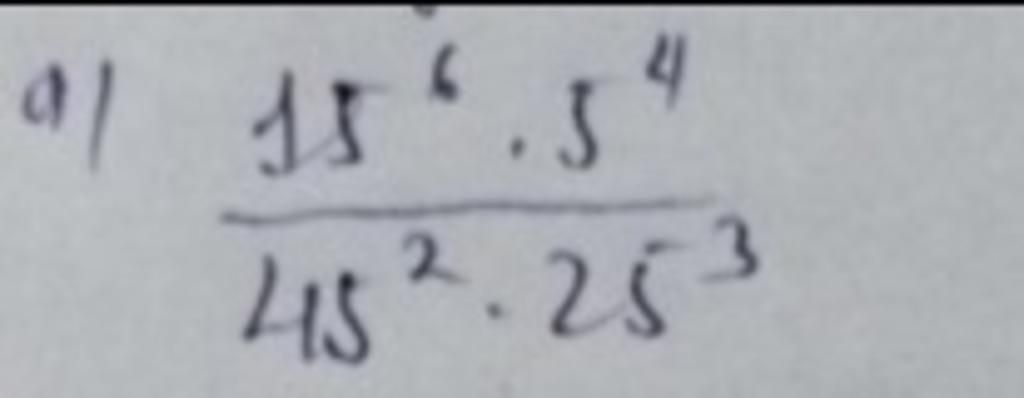 a) 15⁶ · 5⁴
45² · 25³